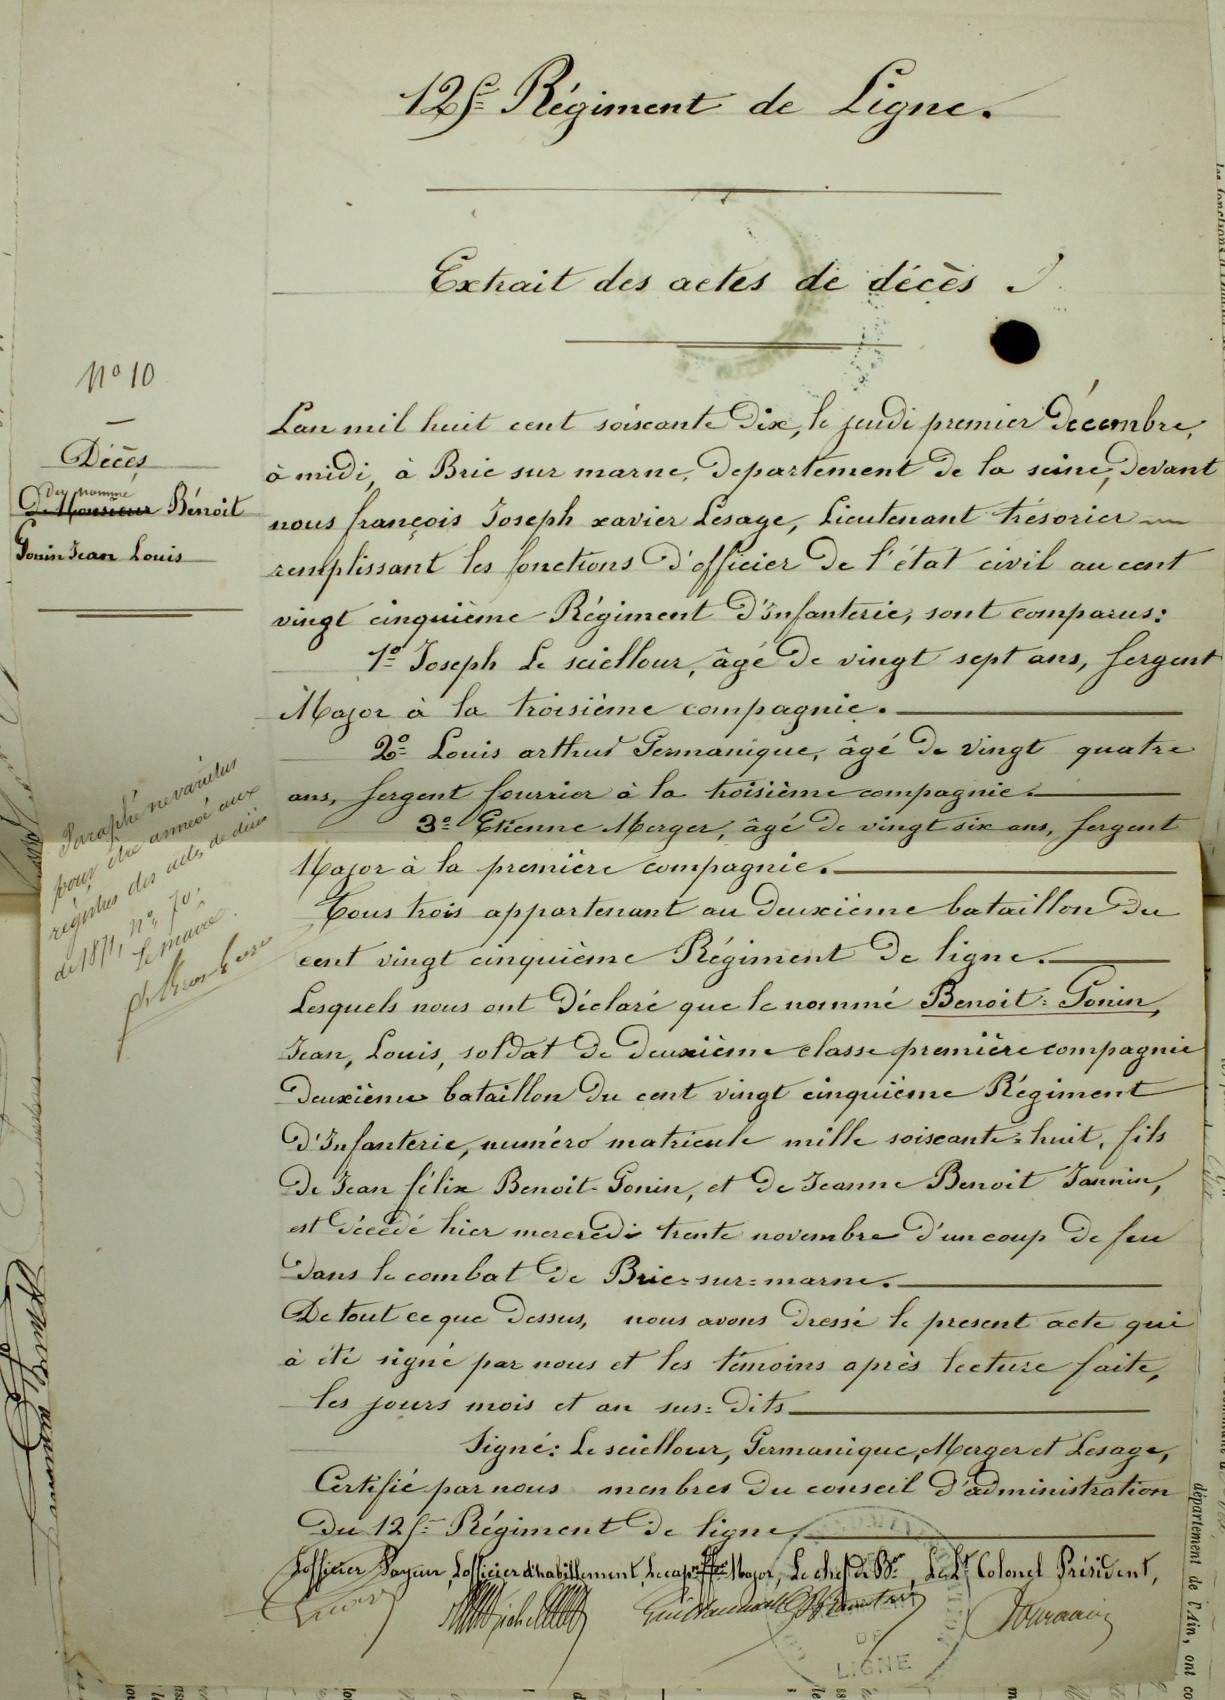 125e Régiment de Ligne.
Extrait des actes de décès
No 10
Décès
du nommé
De Monsieur Bénoit
Gonin Jean Louis
L'an mil huit cent soixante dix, le jeudi premier Décembre,
à midi, à Brie sur marne, Departement de la seine, Devant
nous françois Joseph xavier Lesage, Lieutenant trésorier
remplissant les fonctions d'officier de l'état civil au cent
vingt cinquième Régiment d'Infanterie, sont comparus:
1o Joseph Le sciellour, âgé de vingt sept ans, Sergent
Major à la troisième compagnie.
2o Louis arthur Germanique, âgé de vingt quatre
ans, Sergent fourrier à la troisième compagnie.
3o Etienne Merger, âgé de vingt six ans, Sergent
Major à la première compagnie.
Tous trois appartenant au deuxième bataillon du
cent vingt cinquième Régiment de ligne.
Lesquels nous ont déclaré que le nommé Benoit=Gonin,
Jean, Louis, soldat de deuxième classe première compagnie
deuxième bataillon du cent vingt cinquième Régiment
d'Infanterie, numéro matricule mille soixante=huit, fils
de Jean félix Benoit-Gonin, et de Jeanne Benoit Jannin,
est décédé hier mercredi trente novembre d'un coup de feu
dans le combat de Brie=sur=marne.
De tout ce que dessus, nous avons dressé le present acte qui
à été signé par nous et les témoins après lecture faite,
les jours mois et an sus=dits
Signé: Le sciellour, Germanique, Merger et Lesage,
Certifié par nous membres du conseil d'administration
du 125e Régiment de ligne.
L'officier Payeur, L'officier d'habillement, Le cap. Major, Le chef de Bon, Le Lt Colonel Président,
Paraphé ne varietur
pour être annexé aux
régistres des actes de décès
de 1871, no 70.
Le maire
DE
LIGNE
département de l'Ain, ont